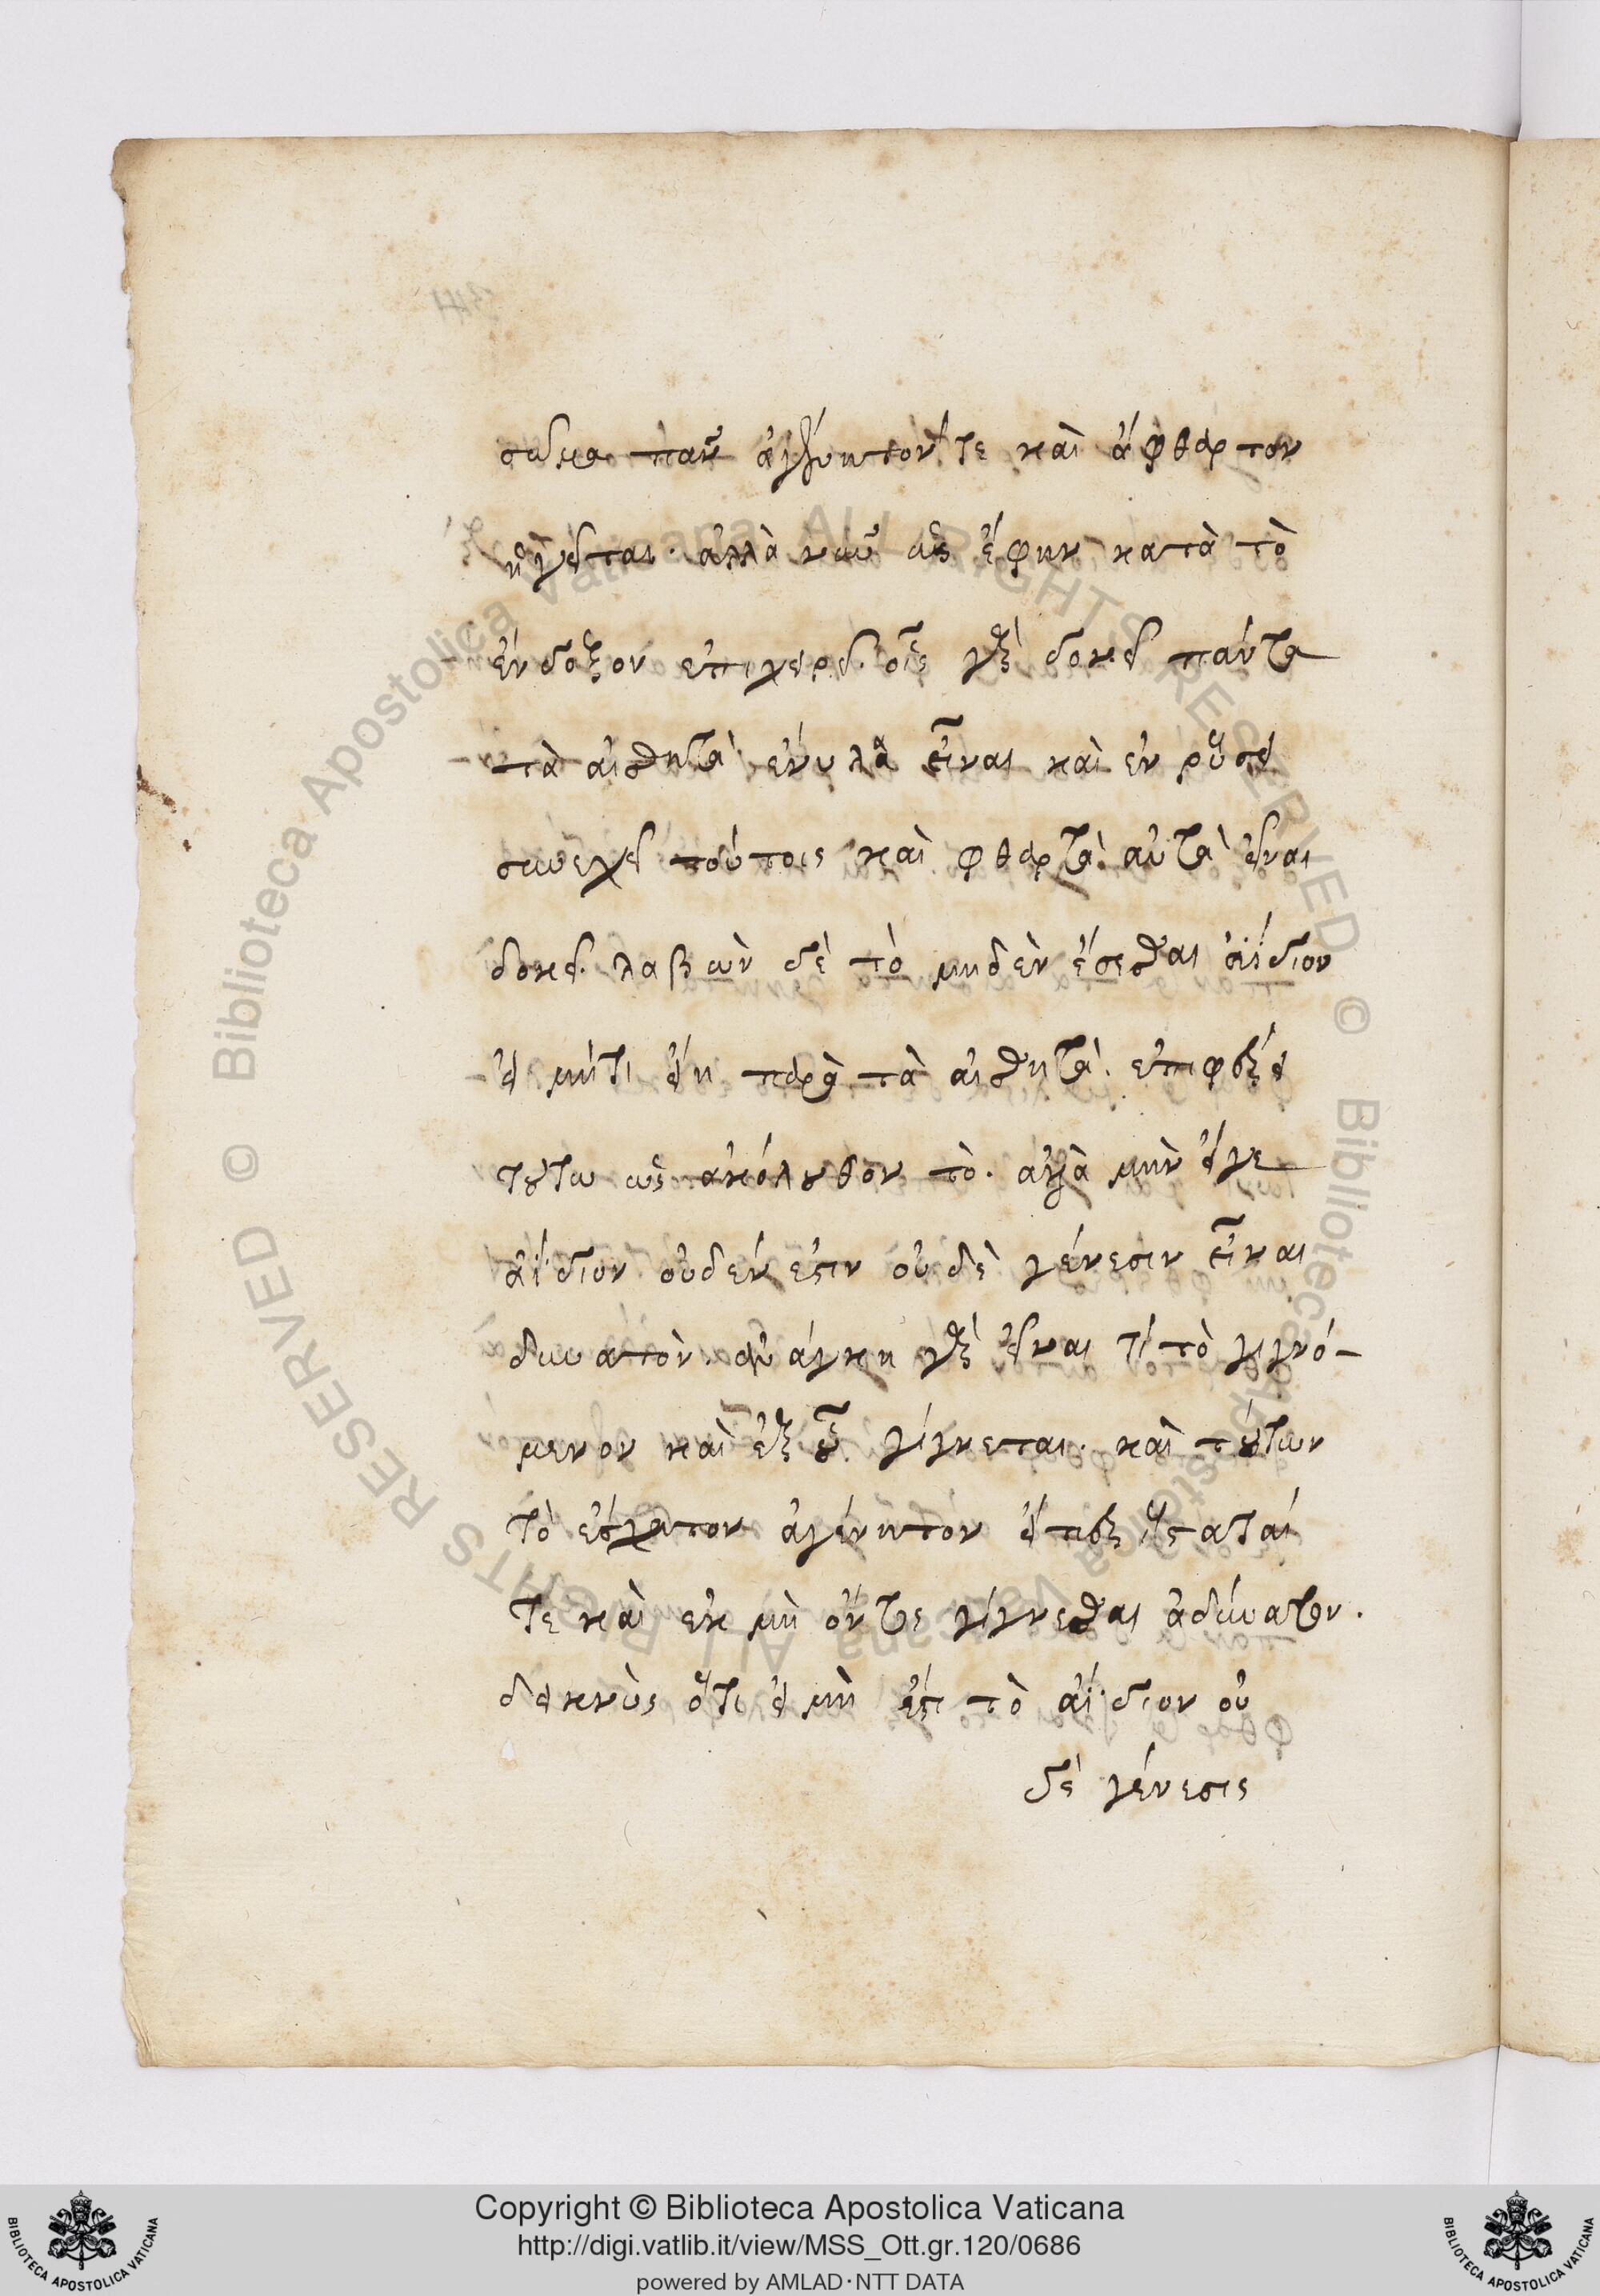 σῶμα πᾶν ἀγένητόν τε καὶ ἄφθαρτον
ἡγεῖται. ἀλλὰ νῦν ὡς ἔφην κατὰ τὸ
ἔνδοξον ἐπιχειρεῖ. οἷς γὰρ δοκεῖ πάντα
τὰ αἰσθητὰ ἔνυλα εἶναι καὶ ἐν ῥύσει
συνεχεῖ τούτοις καὶ φθαρτὰ αὐτὰ εἶναι
δοκεῖ. λαβὼν δὲ τὸ μηδὲν ἔσεσθαι ἀΐδιον
εἰ μήτι εἴη παρὰ τὰ αἰσθητὰ. ἐπιφέρει
τούτω ὡς ἀκόλουθον τὸ. ἀλλὰ μὴν εἴγε
ἀΐδιον οὐδέν ἐστιν οὐδὲ γένεσιν εἶναι
δυνατὸν. ἀνάγκη γὰρ εἶναι τί τὸ γιγνό-
μενον καὶ ἐξ οὗ γίγνεται. καὶ τούτων
τὸ ἔσχατον ἀγένητον εἴπερ ἵσταταί
τε καὶ ἐκ μὴ ὄντος γίγνεσθαι ἀδύνατον.
δεικνὺς ὅτι εἰ μὴ ἔστι τὸ ἀΐδιον οὐ
δὲ γένεσις
Copyright © Biblioteca Apostolica Vaticana
http://digi.vatlib.it/view/MSS_Ott.gr.120/0686
powered by AMLAD·NTT DATA
BIBLIOTECA APOSTOLICA VATICANA
BIBLIOTECA APOSTOLICA VATICANA